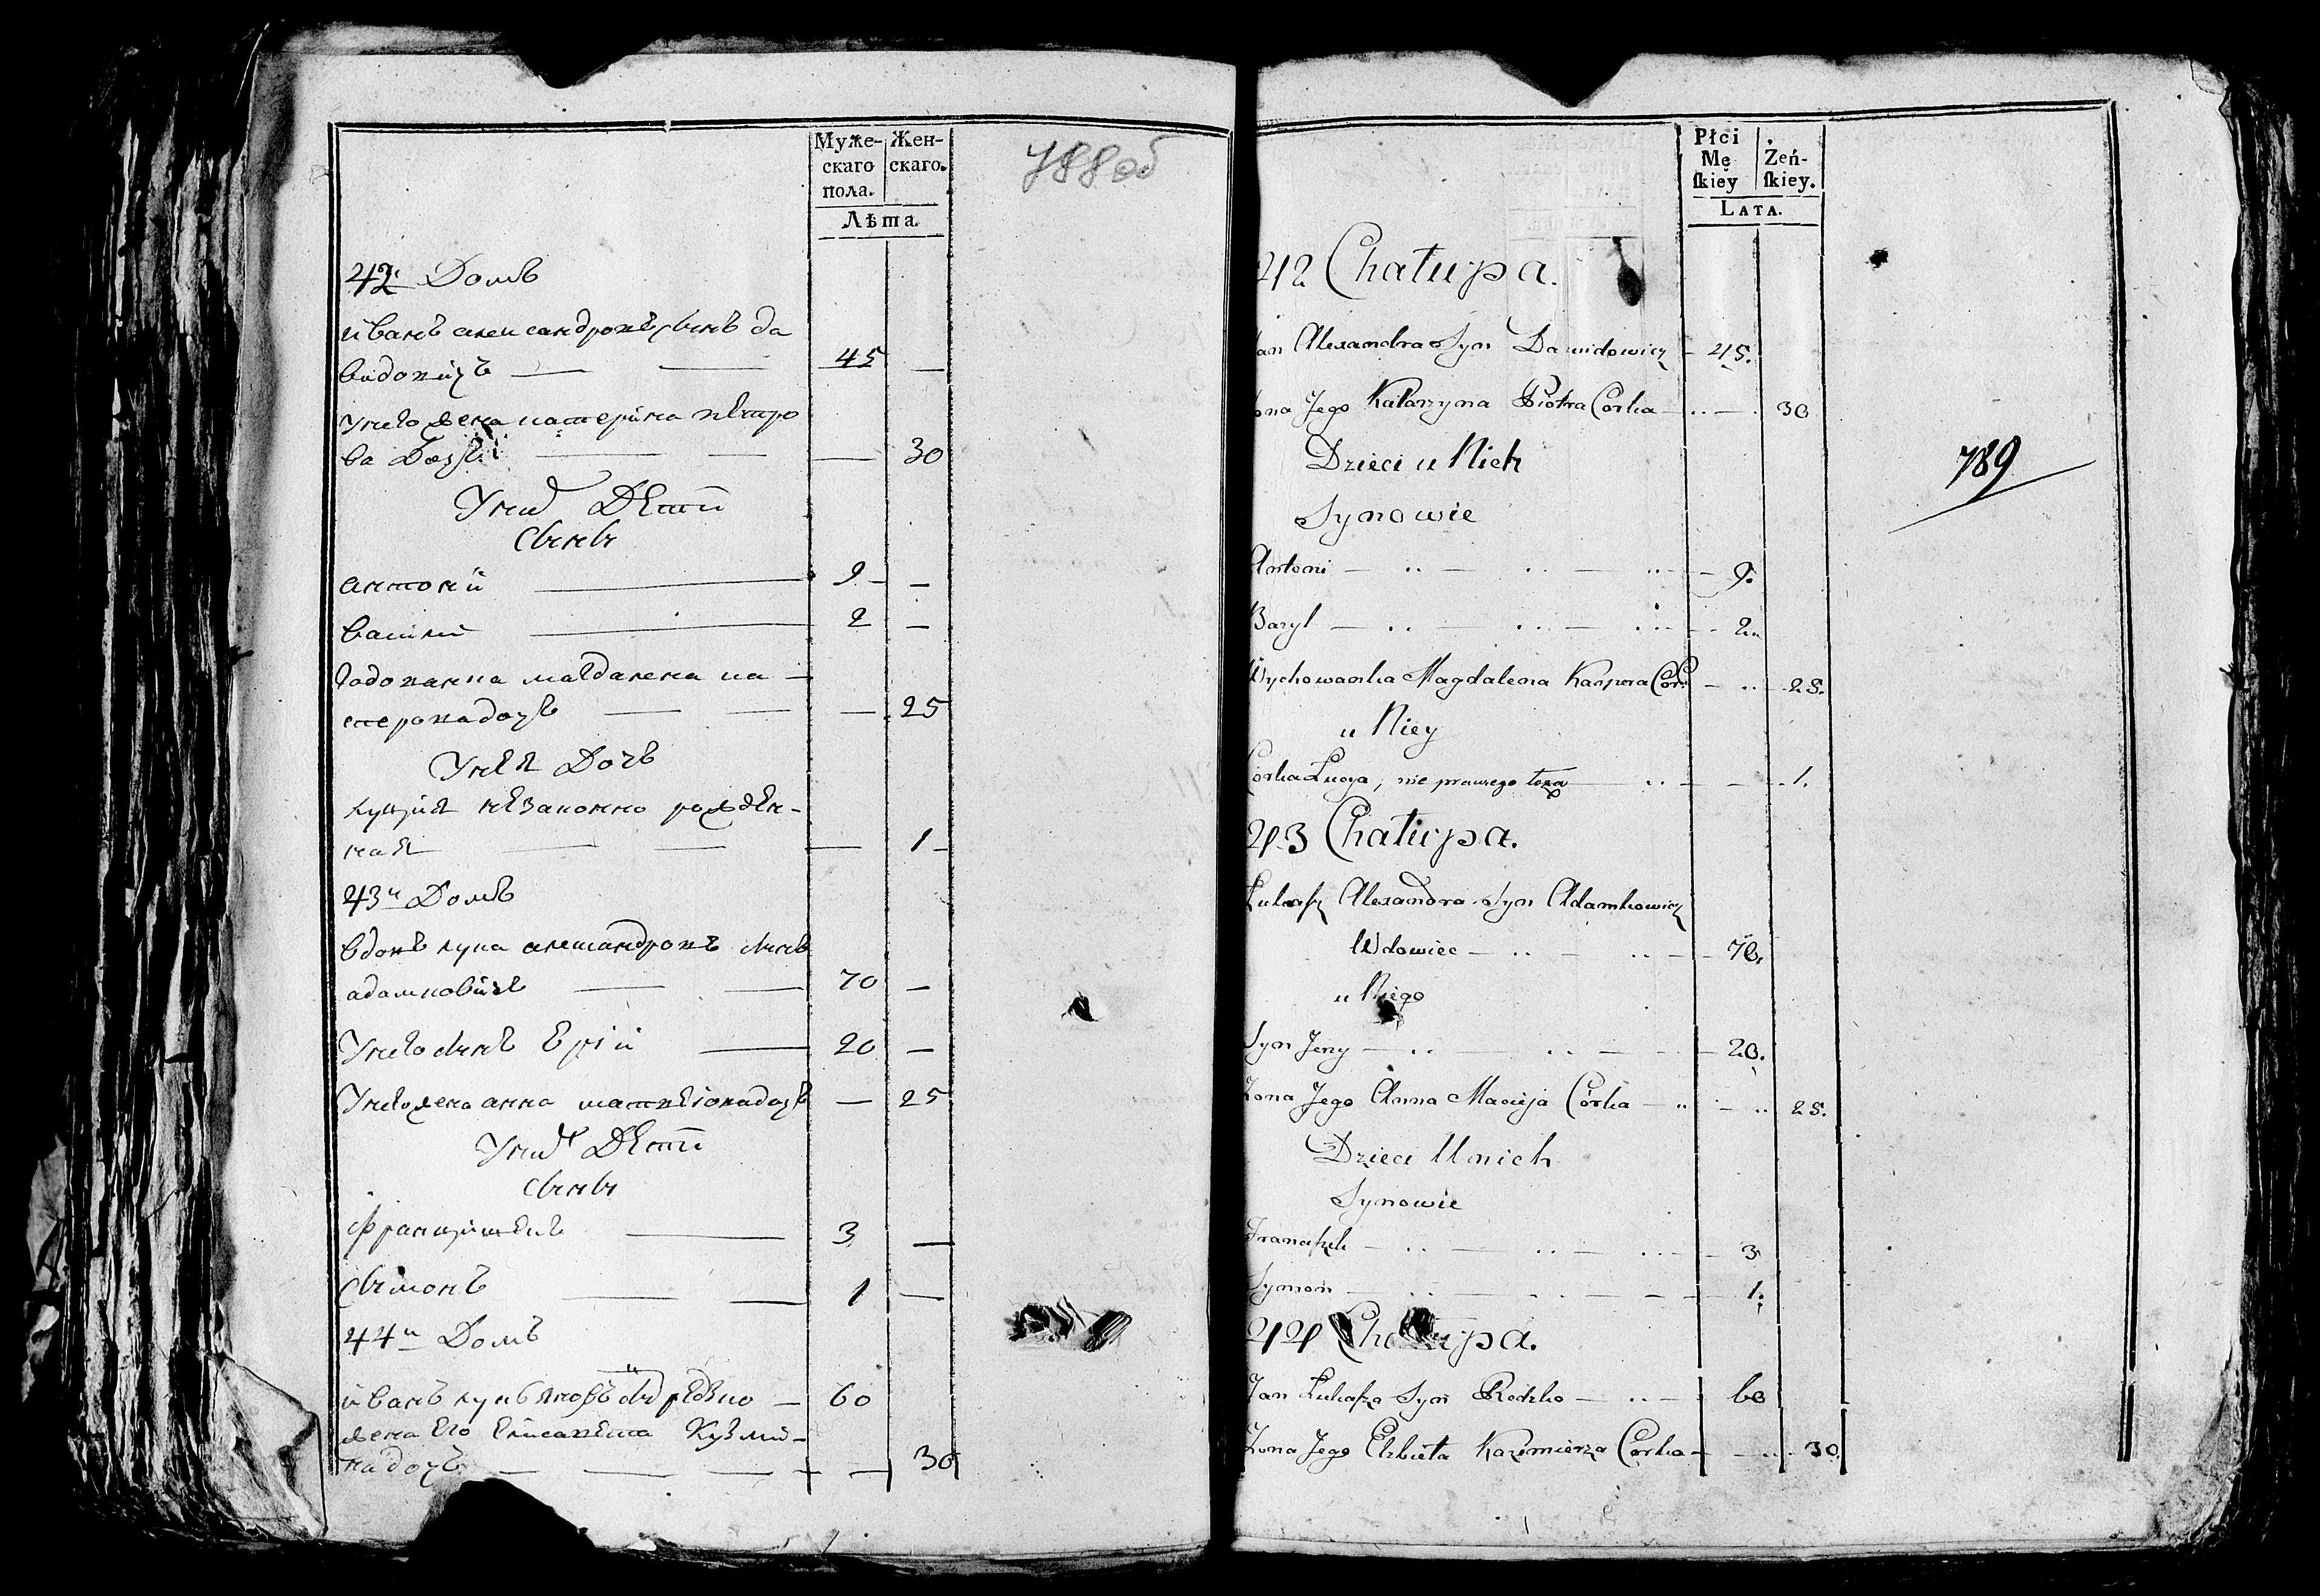 Муже-
скаго
пола.
Жен-
скаго.
Лѣта.
788 об
42 Домъ
иванъ александровъ сынъ да
видовичь 45 —
унего жена катерина петро
ва Дочь — 30
Унихъ Дети
Сыны
антоний 9 —
василий 2 —
годованка магдалена ка-
сперовадочь — 25
Унея Дочь
луция незаконно рожден-
ная — 1
43й Домъ
вдовъ лука александровъ сынъ
адамковичь 70 —
Унего сынъ Ерiй 20 —
Унегожена анна матвеiовадочь — 25
Унихъ Дети
Сыны
францишекъ 3 —
Сымонъ 1 —
44й Домъ
иванъ лукъяновъ сынъ редзко 60
жена его елисавета Кузми-
надочь — 30
Płci
Mę
ſkiey
Żeń-
ſkiey.
LATA.
789
42 Chałupa.
Jan Alexandra Syn Dawidowicz 45.
Żona Jego Katarzyna Piotra Corka 30
Dzieci u Nich
Synowie
Antoni 9.
Bazyl 2.
Wychowanka Magdalena Kaspra Cor: 25.
u Niey
Corka Lucya, nie prawego łoża 1.
43 Chałupa.
Łukasz Alexandra Syn Adamkowicz
Wdowiec 70.
u Niego
Syn Jerzy 20.
Żona Jego Anna Macieja Córka 25.
Dzieci U nich
Synowie
Franciszek 3
Symon 1.
44 Chałupa.
Jan Łukasza Syn Redzko 60
Żona Jego Elzbieta Kazimierza Corka 30.